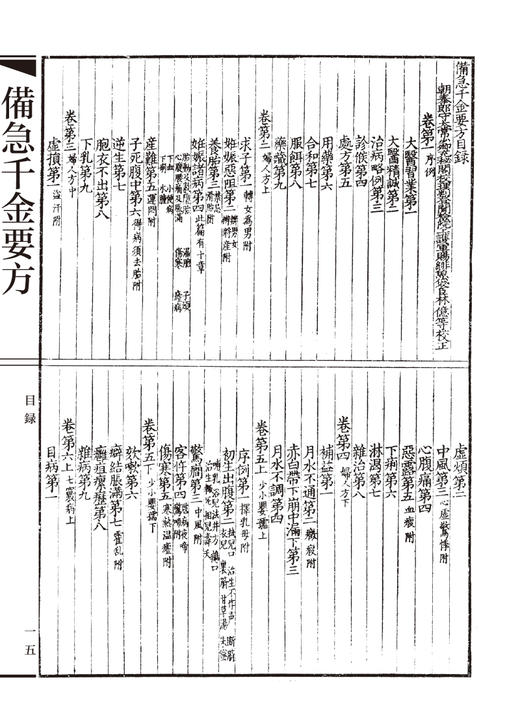 備急千金要方目録
朝奉郎守太常少卿充秘閣校理判登聞檢院上護軍賜緋魚袋臣林億等校正
卷第一 序例
大醫習業第一
大醫精誠第二
治病略例第三
診候第四
處方第五
用藥第六
合和第七
服餌第八
藥藏第九
卷第二 婦人方上
求子第一 轉女為男附
妊娠惡阻第二
養胎第三
妊娠諸病第四 此篇有十章
產難第五 運悶附
子死腹中第六 得病須去胎附
逆生第七
胞衣不出第八
下乳第九
卷第三 婦人方中
虛損第一 盜汗附
虛煩第二
中風第三 心虛驚悸附
心腹痛第四
惡露第五 血瘕附
下痢第六
淋渴第七
雜治第八
卷第四 婦人方下
補益第一
月水不通第二 癥瘕附
赤白帶下崩中漏下第三
月水不調第四
卷第五上 少小嬰孺上
序例第一 擇乳母附
初生出腹第二
驚癇第三 中風附
客忤第四
傷寒第五 寒熱溫瘧附
卷第五下 少小嬰孺下
欬嗽第六
癖結脹滿第七 霍亂附
癰疽瘰癧第八
雜病第九
卷第六上 七竅病上
目病第一
備急千金要方
目錄
一五